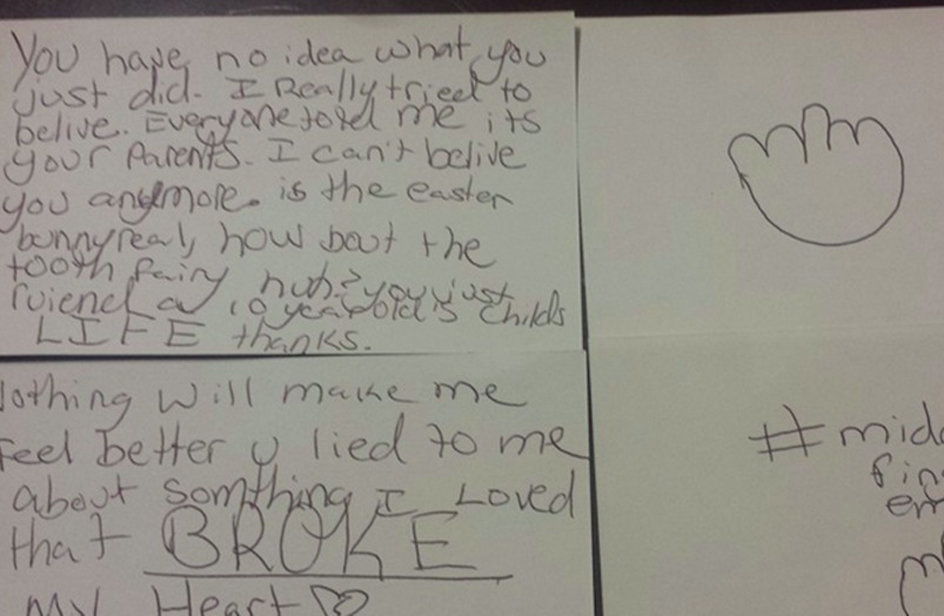 You have no idea what you
just did. I Really trieed to
belive. Everyone told me its
your Parents. I can't belive
you anymore. is the easter
bunny real, how bout the
tooth fairy huh? you just
ruiened a 10 year old's childs
LIFE thanks.
Nothing will make me
Feel better u lied to me
about somthing I Loved
that BROKE
my Heart
#midd
fin
em